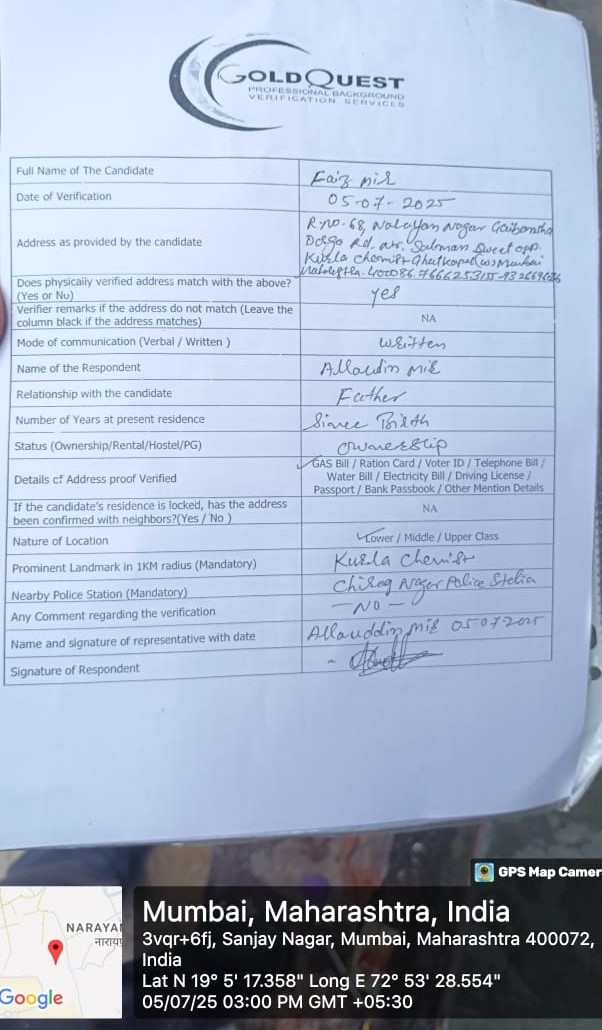 GOLDQUEST
PROFESSIONAL BACKGROUND
VERIFICATION SERVICES
Full Name of The Candidate
Faiz Mir
Date of Verification
05-07-2025
Address as provided by the candidate
R.no.68, Narayan Nagar
Rd. nr. Salman Sweet opp.
Kurla chemist Ghatkopar (w) Mumbai
400086. 7666253155-
Does physically verified address match with the above? (Yes or No)
yes
Verifier remarks if the address do not match (Leave the
column black if the address matches)
NA
Mode of communication (Verbal / Written )
written
Name of the Respondent
Allaudin Mir
Relationship with the candidate
Father
Number of Years at present residence
Since Birth
Status (Ownership/Rental/Hostel/PG)
ownership
Details of Address proof Verified
GAS Bill / Ration Card / Voter ID / Telephone Bill /
Water Bill / Electricity Bill / Driving License /
Passport / Bank Passbook / Other Mention Details
If the candidate's residence is locked, has the address
been confirmed with neighbors?(Yes / No )
NA
Nature of Location
Lower / Middle / Upper Class
Prominent Landmark in 1KM radius (Mandatory)
Kurla Chemist
Nearby Police Station (Mandatory)
Chirag Nagar Police
Any Comment regarding the verification
-NO-
Name and signature of representative with date
Allauddin Mir 05072025
Signature of Respondent
GPS Map Camer
NARAYA
नाराय
Google
Mumbai, Maharashtra, India
3vqr+6fj, Sanjay Nagar, Mumbai, Maharashtra 400072,
India
Lat N 19° 5' 17.358" Long E 72° 53' 28.554"
05/07/25 03:00 PM GMT +05:30